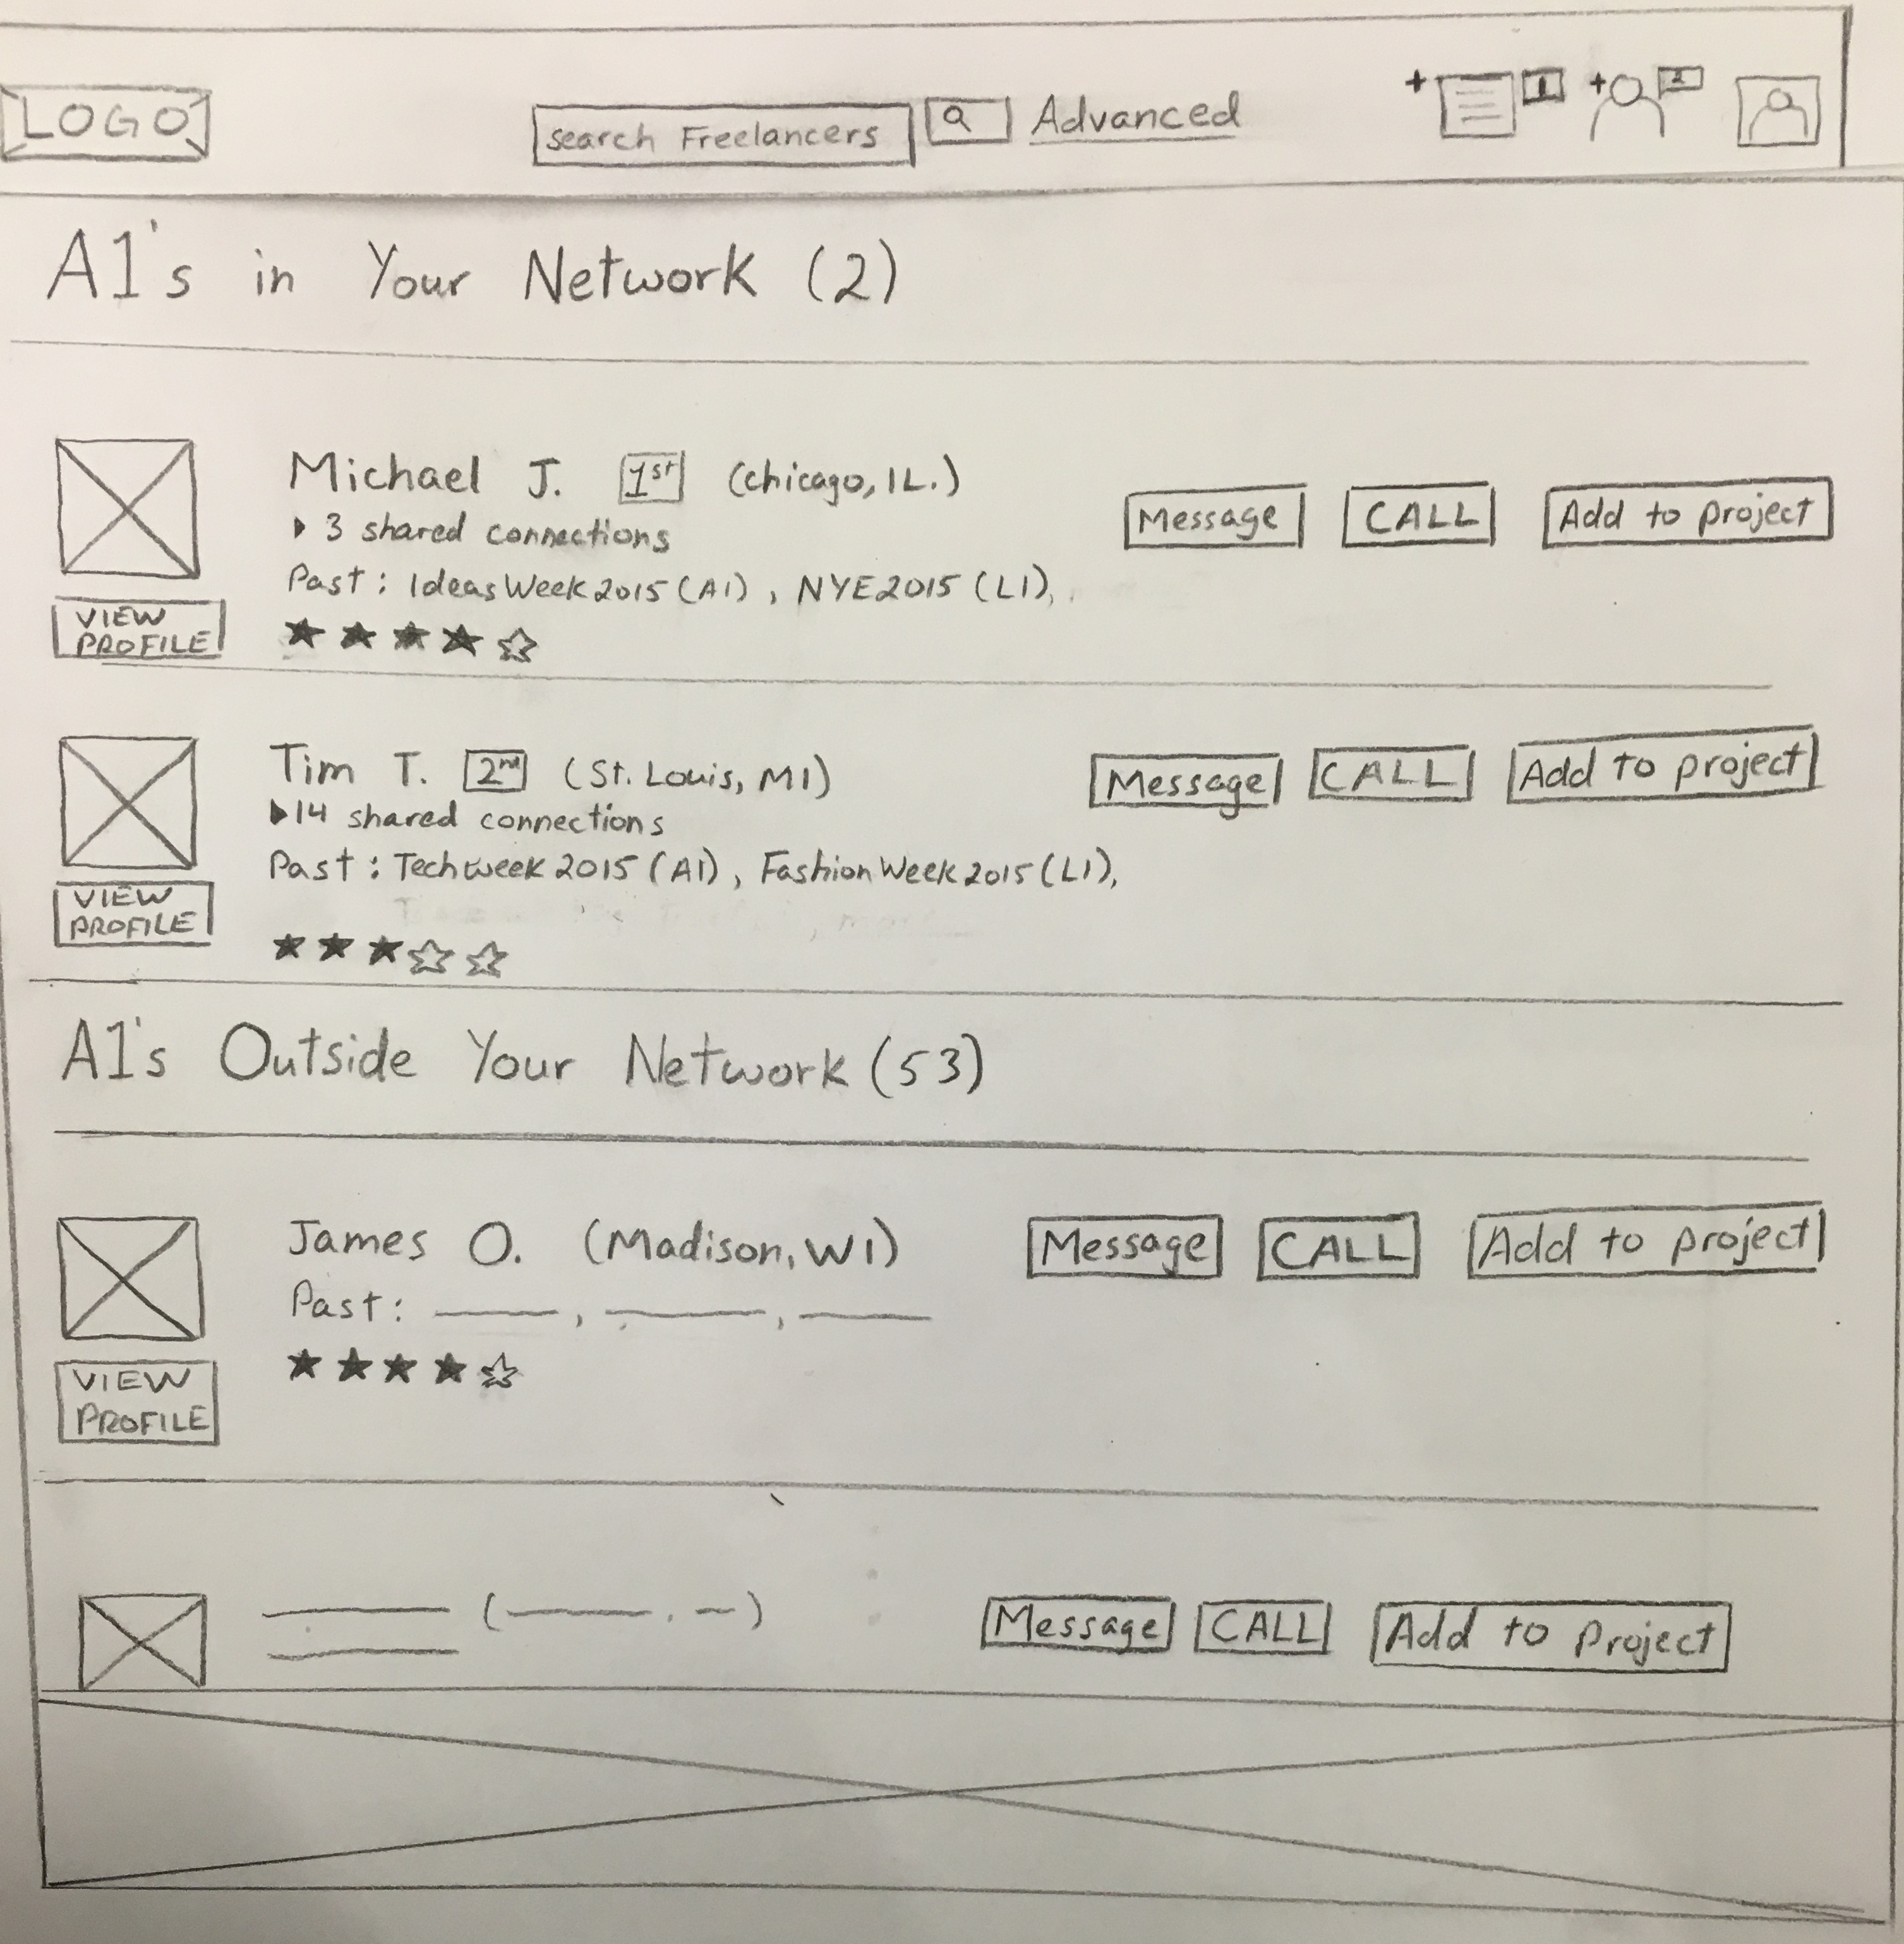 LOGO
search Freelancers Advanced + 1 + 2
A1's in Your Network (2)
Michael J. 1st (chicago, IL.)
3 shared connections
Past: IdeasWeek2015 (A1), NYE2015 (L1),
VIEW
PROFILE
Message CALL Add to project
Tim T. 2nd (St. Louis, MI)
14 shared connections
Past: Techweek 2015 (A1), FashionWeek2015 (L1),
VIEW
PROFILE
Message CALL Add to project
A1's Outside Your Network (53)
James O. (Madison, WI)
Past:
VIEW
PROFILE
Message CALL Add to project
Message CALL Add to project